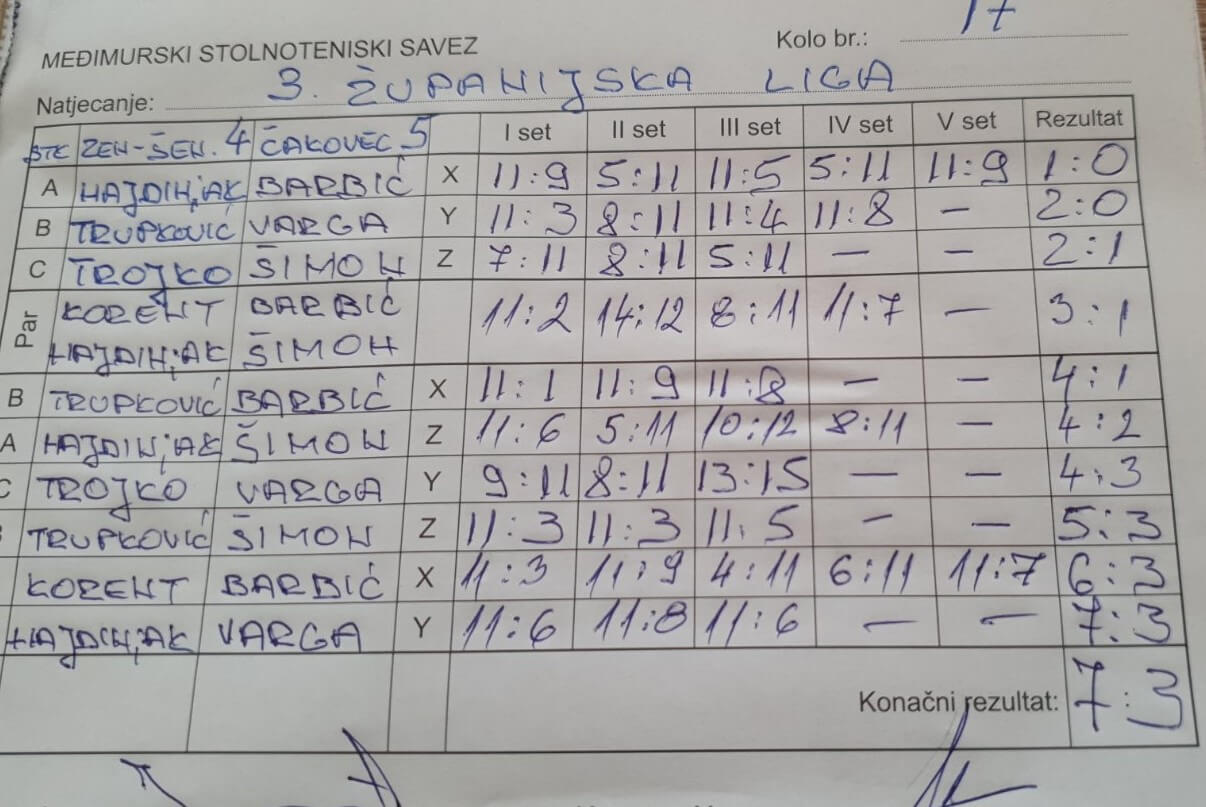 MEĐIMURSKI STOLNOTENISKI SAVEZ Kolo br.: 17
Natjecanje: 3. ŽUPANIJSKA LIGA
STK ZEN-ŠEN. 4 ČAKOVEC 5 I set II set III set IV set V set Rezultat
A HAJDINJAK BARBIĆ X 11:9 5:11 11:5 5:11 11:9 1:0
B TRUPKOVIĆ VARGA Y 11:3 8:11 11:4 11:8 — 2:0
C TROJKO ŠIMON Z 7:11 8:11 5:11 — — 2:1
Par KORENT BARBIĆ 11:2 14:12 8:11 11:7 — 3:1
HAJDINJAK ŠIMON
B TRUPKOVIĆ BARBIĆ X 11:1 11:9 11:8 — — 4:1
A HAJDINJAK ŠIMON Z 11:6 5:11 10:12 8:11 — 4:2
C TROJKO VARGA Y 9:11 8:11 13:15 — — 4:3
TRUPKOVIĆ ŠIMON Z 11:3 11:3 11:5 — — 5:3
KORENT BARBIĆ X 11:3 11:9 4:11 6:11 11:7 6:3
HAJDINJAK VARGA Y 11:6 11:8 11:6 — — 7:3
Konačni rezultat: 7:3